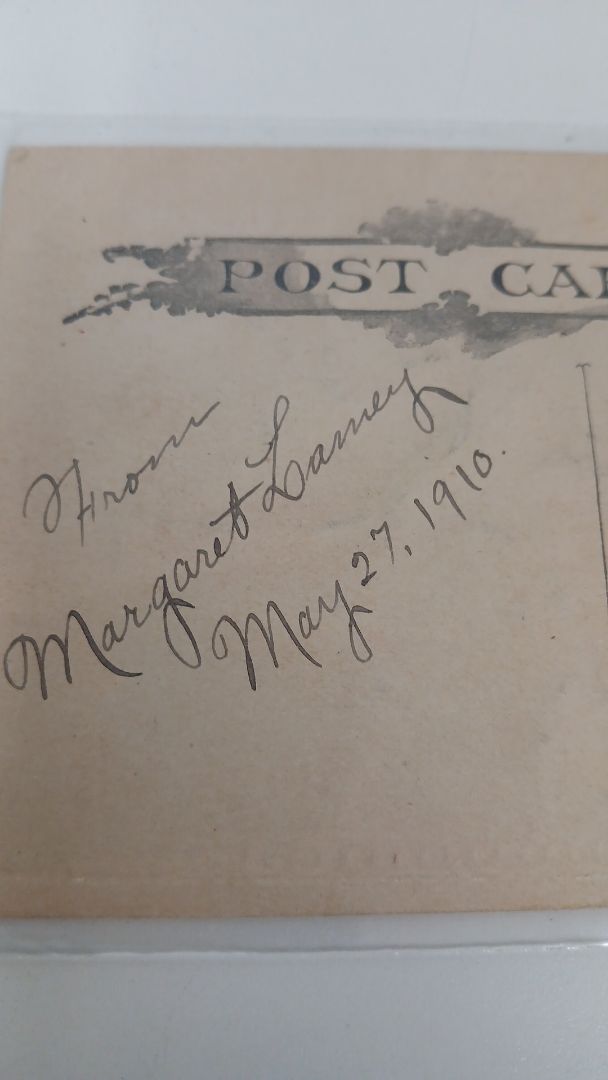 POST CA
From
Margaret Lamey
May 27, 1910.